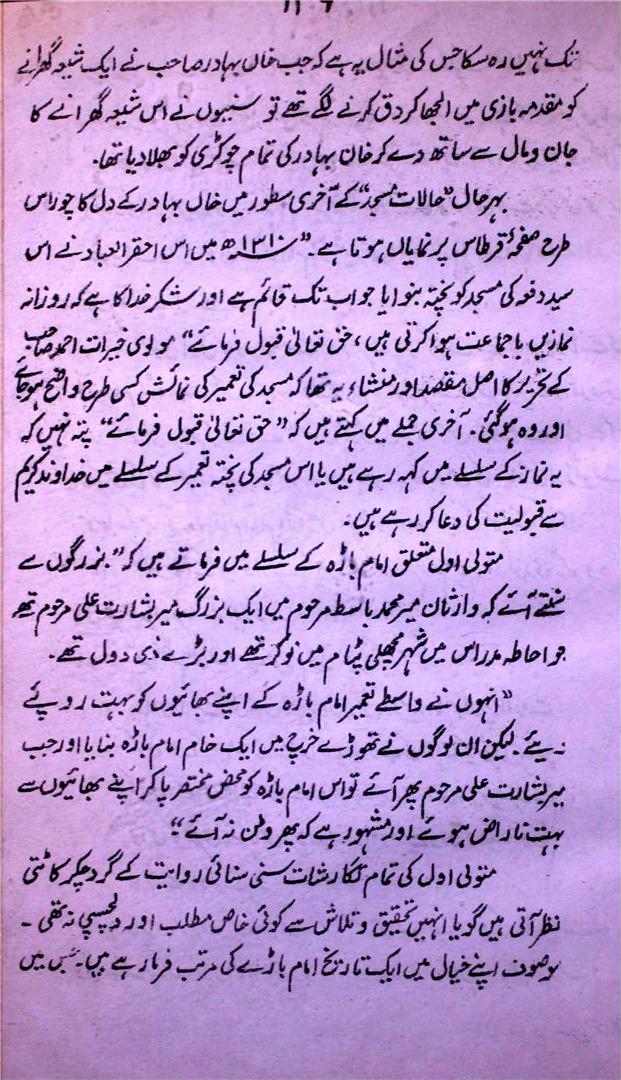 تک نہیں رہ سکا جس کی مثال یہ ہے کہ جب خاں بہادر صاحب نے ایک شیعہ گھرانے
کو مقدمہ بازی میں الجھا کر دق کرنے لگے تھے تو سنیوں نے اس شیعہ گھرانے کا
جان و مال سے ساتھ دے کر خان بہادر کی تمام چوکڑی کو بھلا دیا تھا۔
بہر حال "حالات مسجد" کے آخری سطور میں خاں بہادر کے دل کا چور اس
طرح صفحۂ قرطاس پر نمایاں ہوتا ہے۔ "۱۳۱۰ھ میں اس احقر العباد نے اس
سید دفعہ کی مسجد کو پختہ بنوایا جو اب تک قائم ہے اور شکر خدا کا ہے کہ روزانہ
نمازیں باجماعت ہوا کرتی ہیں، حق تعالیٰ قبول فرمائے" مولوی خیرات احمد صاحب
کے تحریر کا اصل مقصد اور منشاء یہ تھا کہ مسجد کی تعمیر کی نمائش کسی طرح واضح ہو جائے
اور وہ ہو گئی۔ آخری جملے میں کہتے ہیں کہ "حق تعالیٰ قبول فرمائے" پتہ نہیں کہ
یہ نماز کے سلسلے میں کہہ رہے ہیں یا اس مسجد کی پختہ تعمیر کے سلسلے میں خداوند کریم
سے قبولیت کی دعا کر رہے ہیں۔
متولی اول متعلق امام باڑہ کے سلسلے میں فرماتے ہیں کہ "بزرگوں سے
سنتے آئے کہ وارثان میر محمد باسط مرحوم میں ایک بزرگ میر بشارت علی مرحوم تھے
جو احاطہ مدراس میں شہر مچھلی پٹام میں نوکر تھے اور بڑے ذی دول تھے۔
"انہوں نے واسطے تعمیر امام باڑہ کے اپنے بھائیوں کو بہت روپئے
دیئے۔ لیکن ان لوگوں نے تھوڑے خرچ میں ایک خام امام باڑہ بنایا اور جب
میر بشارت علی مرحوم پھر آئے تو اس امام باڑہ کو محض مختصر پا کر اپنے بھائیوں سے
بہت ناراض ہوئے اور مشہور ہے کہ پھر وطن نہ آئے"
متولی اول کی تمام نگارشات سنی سنائی روایت کے گرد چکر کاٹتی
نظر آتی ہیں گویا انہیں تحقیق و تلاش سے کوئی خاص مطلب اور دلچسپی نہ تھی۔
موصوف اپنے خیال میں ایک تاریخ امام باڑے کی مرتب فرما رہے ہیں۔ جس میں